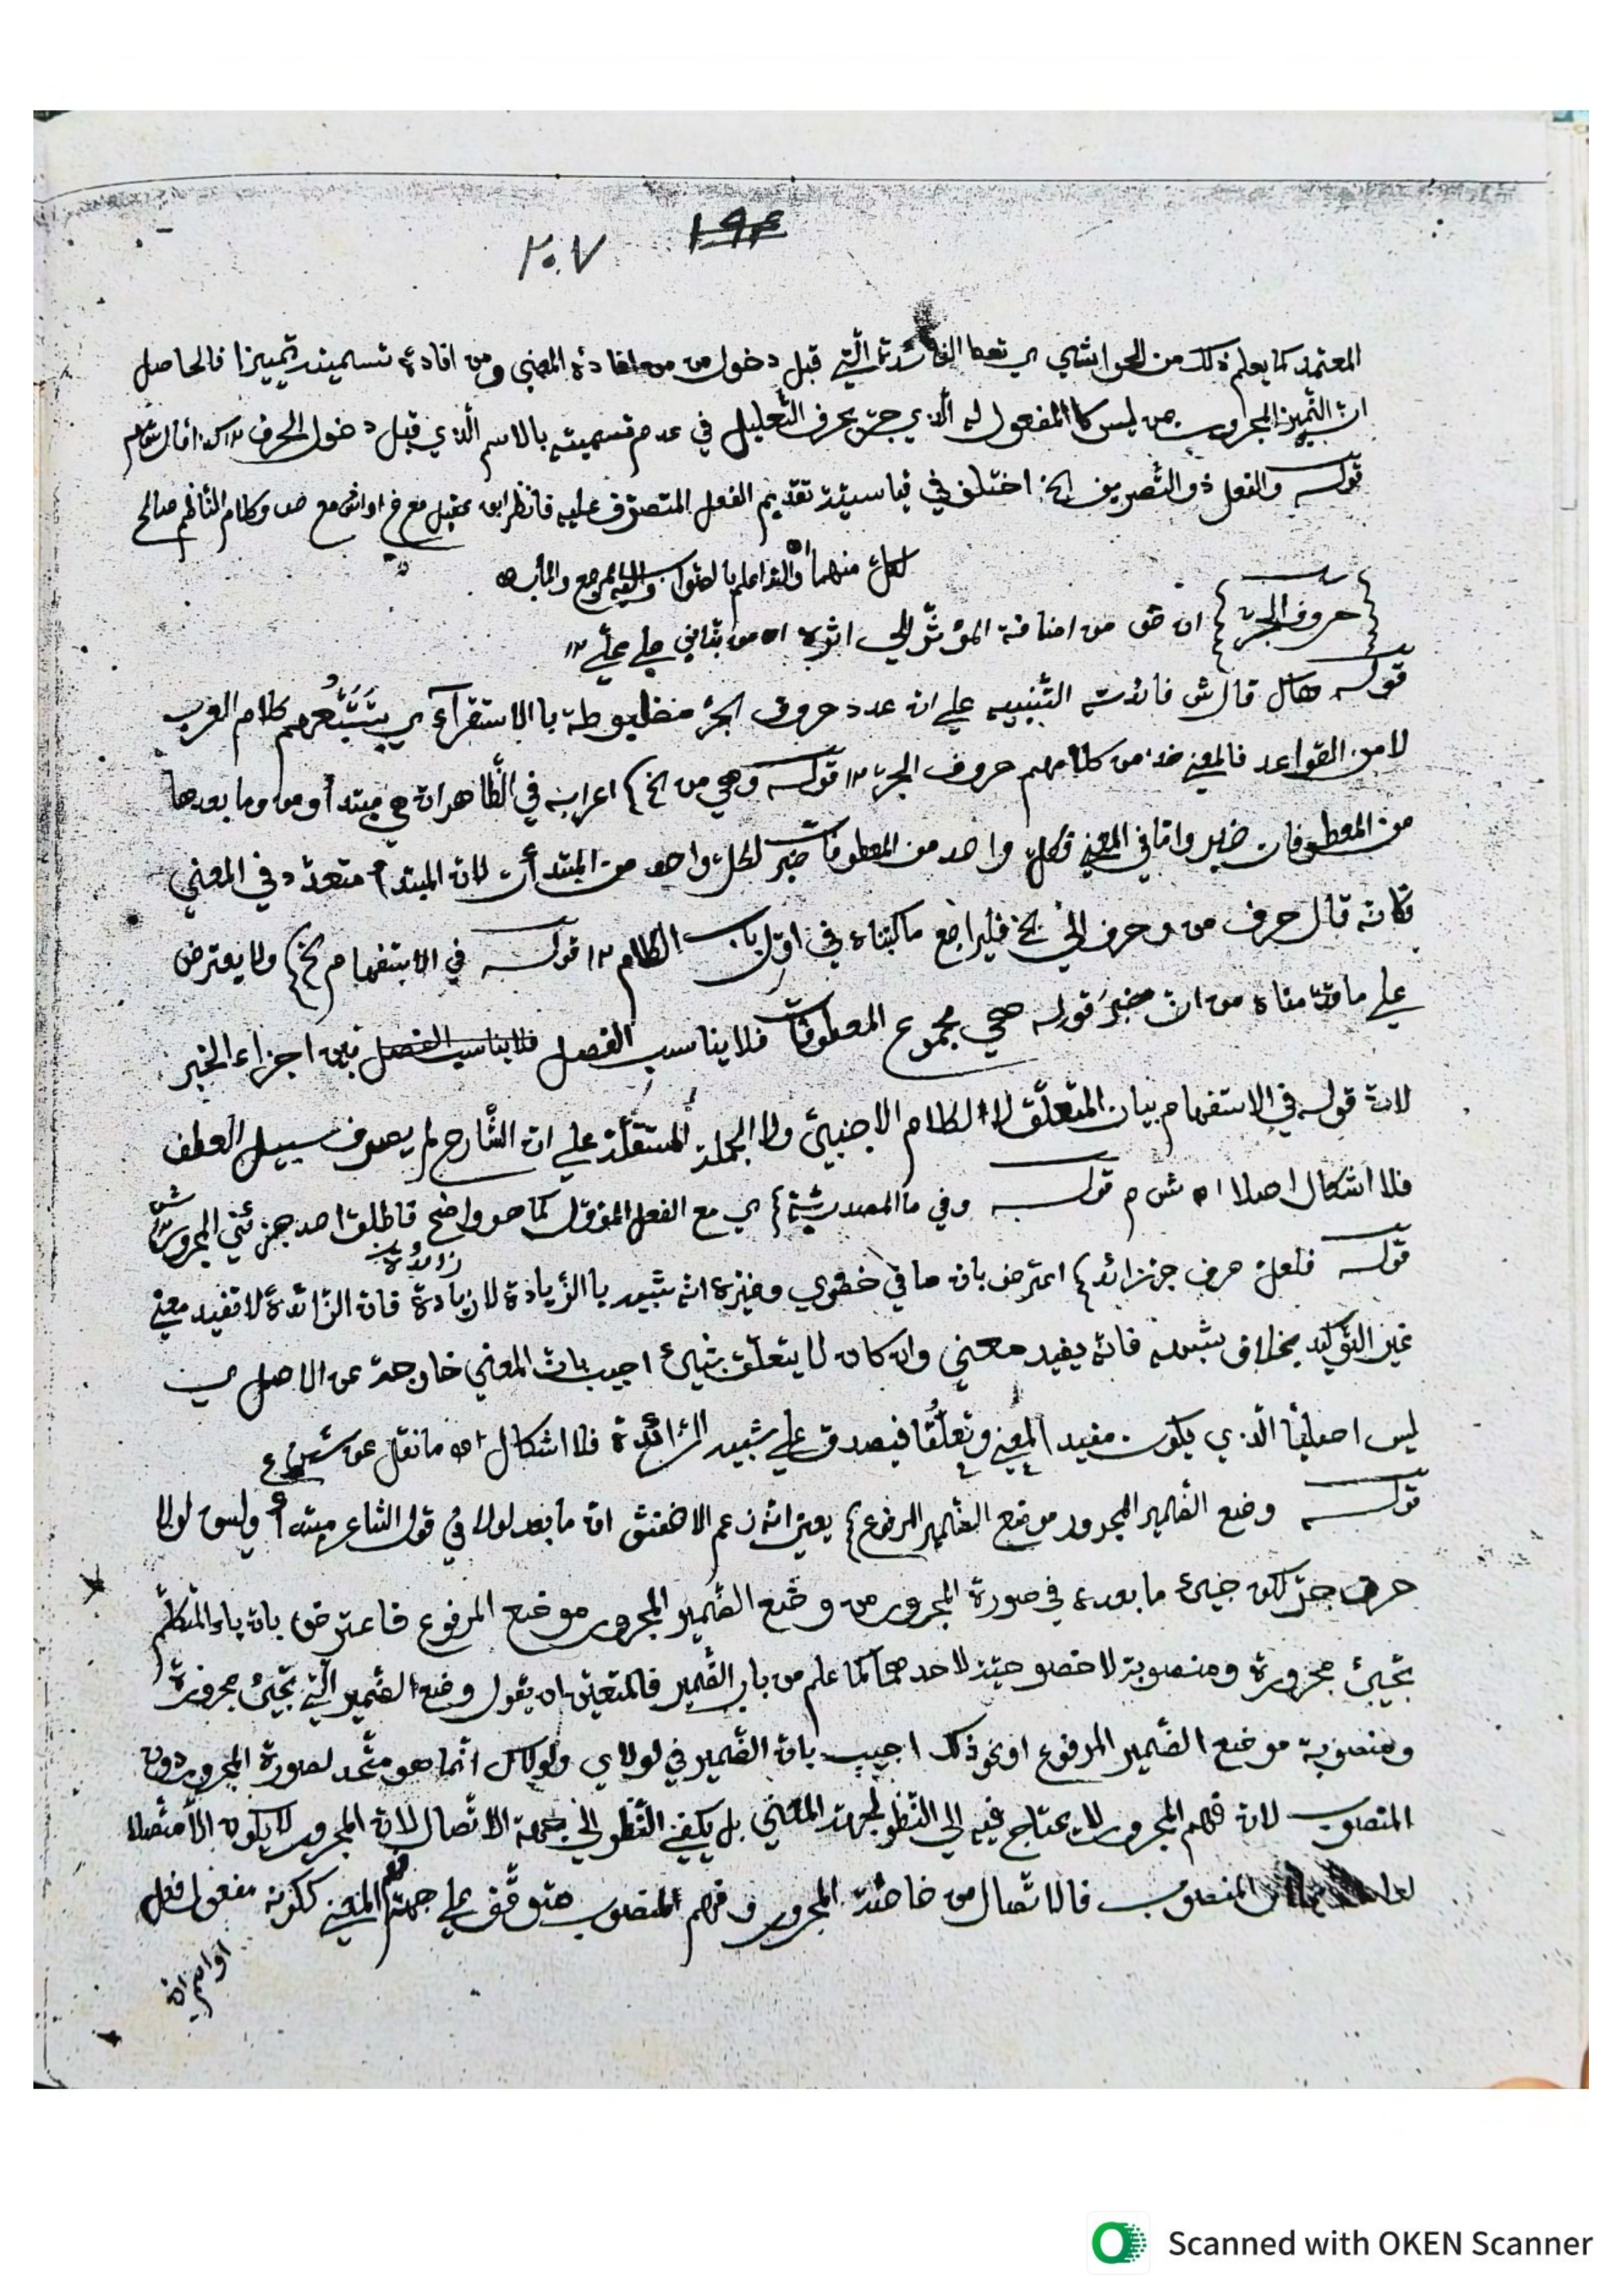 ١٩٤
٢٠٧
المعتمد كما يعلم ذلك من الحواشي اي تعط الفائدة الّتي قبل دخول من من افادة المعنى ومن افادة تسميته تمييزا فالحاصل
ان التّمييز المجرور بمن ليس كالمفعول له الّذي جرّ بحرف التّعليل في عدم تسميته بالاسم الّذي قبل دخول الحرف
قوله والفعل ذو التّصريف الخ اختلف في قياسيّة تقديم الفعل المتصرّف عليه فانظر ابن عقيل مع وكلام النّاظم صالح
لكلّ منهما والله اعلم بالصّواب واليه المرجع والمأب
{حروف الجرّ} من اضافة المؤثّر الى اثره اه
قوله هاك قال ش فائدته التّنبيه على ان عدد حروف الجرّ مضبوطة باالاستقرآء اي بتَتَبُّعهم كلام العرب
لا من القواعد فالمعنى خذ من كلامهم حروف الجرّ ١٢ قوله وهي من الخ} اعرابه في الظّاهر ان هي مبتدأ ومن وما بعدها
من المعطوفات خبر وامّا في المعنى فكلّ واحد من المعطوفات خبر لكلّ واحد من المبتدأت لان المبتدأ متعدّد في المعنى
فكانّه قال حرف من وحرف الى الخ فليراجع ما كتبناه في اوّل باب الكلام ١٢ قوله في الاستفهام الخ} ولا يعترض
على ما قدّمناه من ان خبرَ قوله هي مجموع المعطوفات فلا يناسب الفصل فلا يناسب الفصل بين اجزاء الخبر
لانّ قوله في الاستفهام بيان المتعلّق لا الكلام الاجنبيّ ولا الجملة المستقلّة على ان الشّارح لم يعرف سبيل العطف
فلا اشكال اصلا اه ش م قوله وفي ما المصدريّة} اي مع الفعل المؤوّل كما هو واضح فاطلق احد جزئي المجرور
قوله فلعلّ حرف جرّ زائد} اعترض بان ما في خضري وغيره انّه شبيه باالزّيادة لا زيادة زائدة فان الزّائدة لا تفيد معنى
غير التّوكيد بخلاف شبهه فانّه يفيد معنى وان كان لا يتعلّق بشيئ اجيب بانّ المعنى خارجة عن الاصل اي
ليس اصليّا الّذي يكون مفيد المعنى وتعلُّقا فيصدق على شبيه الزّائدة فلا اشكال اه ما نقل عن
قوله وضع الضّمير المجرور موضع الضّمير المرفوع} يعنى انّه زعم الاخفش انّ ما بعد لولا في قول الشّاعر مبتدأ وليس لولا
حرف جرّ لكن جيئ ما بعده في صورة المجرور من وضع الضّمير المجرور موضع المرفوع فاعترض بان ياء المتكلّم
تجيئ مجرورة ومنصوبة لا خصوصيّة لاحدهما كما علم من باب الضّمير فالمتعيّن ان يقول وضع الضّمير الّتي تجيئ مجرورة
ومنصوبة موضع الضّمير المرفوع او نحو ذلك اجيب بان الضّمير في لولاي ولولاك انّما هو متّحد لصورة المجرور دون
المنصوب لان فهم المجرور لا يحتاج فيه الى النّظر لجهة المعنى بل يكفي النّظر الى جهة الاتّصال لان المجرور لا يكون الّا متّصلا
المنصوب فالاتّصال من خاصّة المجرور وفهم المنصوب متوقّف على جهة فهم المعنى ككونه مفعول فعل
او اسم ان
Scanned with OKEN Scanner